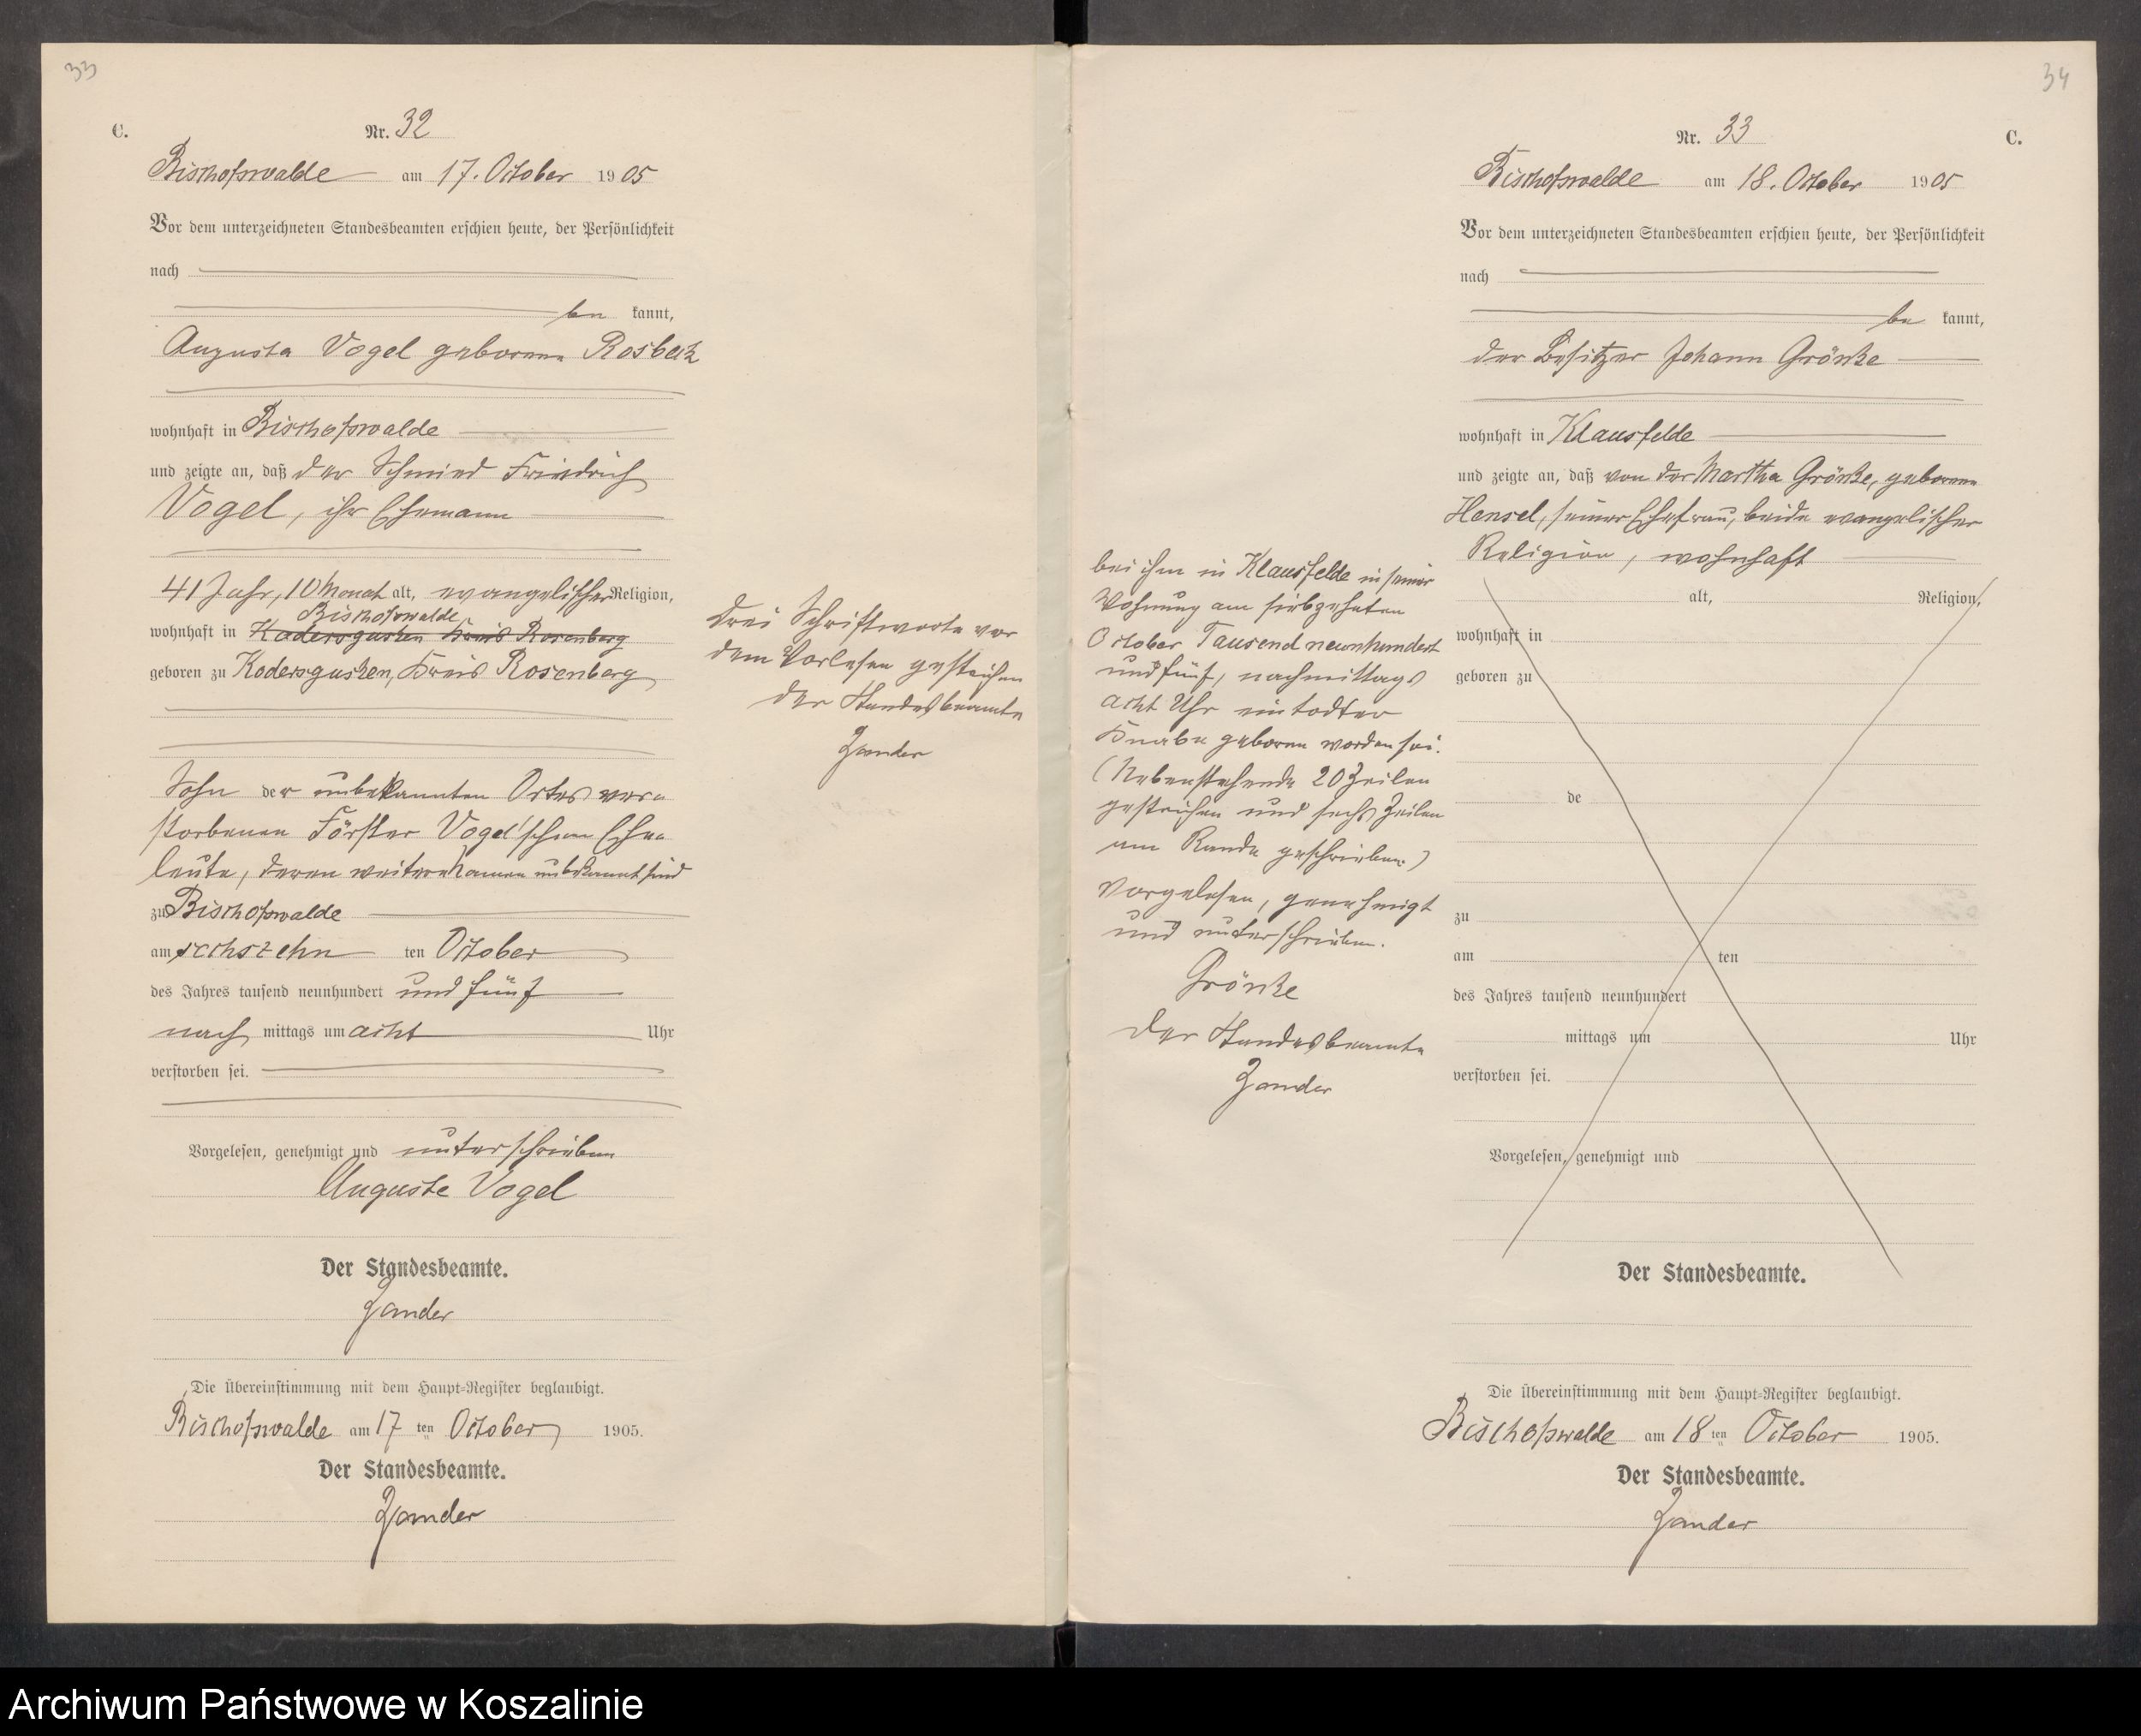 33
C.
Nr. 32
Bischofswalde am 17. October 1905
Vor dem unterzeichneten Standesbeamten erschien heute, der Persönlichkeit
nach
be kannt,
Auguste Vogel geborene Rosbeck
wohnhaft in Bischofswalde
und zeigte an, daß der Schmied Friedrich
Vogel, ihr Ehemann
41 Jahr, 10 Monat alt, evangelischer Religion,
Bischofswalde
wohnhaft in Kadersgusken Kreis Rosenberg
geboren zu Kodersgusken, Kreis Rosenberg
Sohn der unbekannten Ortes ver-
storbenen Förster Vogel'schen Ehe-
leute, deren weitere Namen unbekannt sind
zu Bischofswalde
am sechszehn ten October
des Jahres tausend neunhundert und fünf
nach mittags um acht Uhr
verstorben sei.
Vorgelesen, genehmigt und unterschrieben
Auguste Vogel
Der Standesbeamte.
Zander
Die Übereinstimmung mit dem Haupt-Register beglaubigt.
Bischofswalde am 17 ten October 1905.
Der Standesbeamte.
Zander
Drei Schriftworte vor
dem Vorlesen gestrichen
Der Standesbeamte
Zander
34
C.
Nr. 33
Bischofswalde am 18. October 1905
Vor dem unterzeichneten Standesbeamten erschien heute, der Persönlichkeit
nach
be kannt,
der Besitzer Johann Grönke
wohnhaft in Klausfelde
und zeigte an, daß von der Martha Grönke, geborene
Hensel, seiner Ehefrau, beide evangelischer
Religion, wohnhaft
alt, Religion,
wohnhaft in
geboren zu
de
zu
am ten
des Jahres tausend neunhundert
mittags um Uhr
verstorben sei.
Vorgelesen, genehmigt und
bei ihm in Klausfelde in seiner
Wohnung am siebzehnten
October Tausend neunhundert
und fünf, nachmittags
acht Uhr ein todter
Knabe geboren worden sei.
(Nebenstehende 20 Zeilen
gestrichen und sechs Zeilen
am Rande geschrieben.)
Vorgelesen, genehmigt
und unterschrieben.
Grönke
Der Standesbeamte
Zander
Der Standesbeamte.
Die Übereinstimmung mit dem Haupt-Register beglaubigt.
Bischofswalde am 18 ten October 1905.
Der Standesbeamte.
Zander
Archiwum Państwowe w Koszalinie